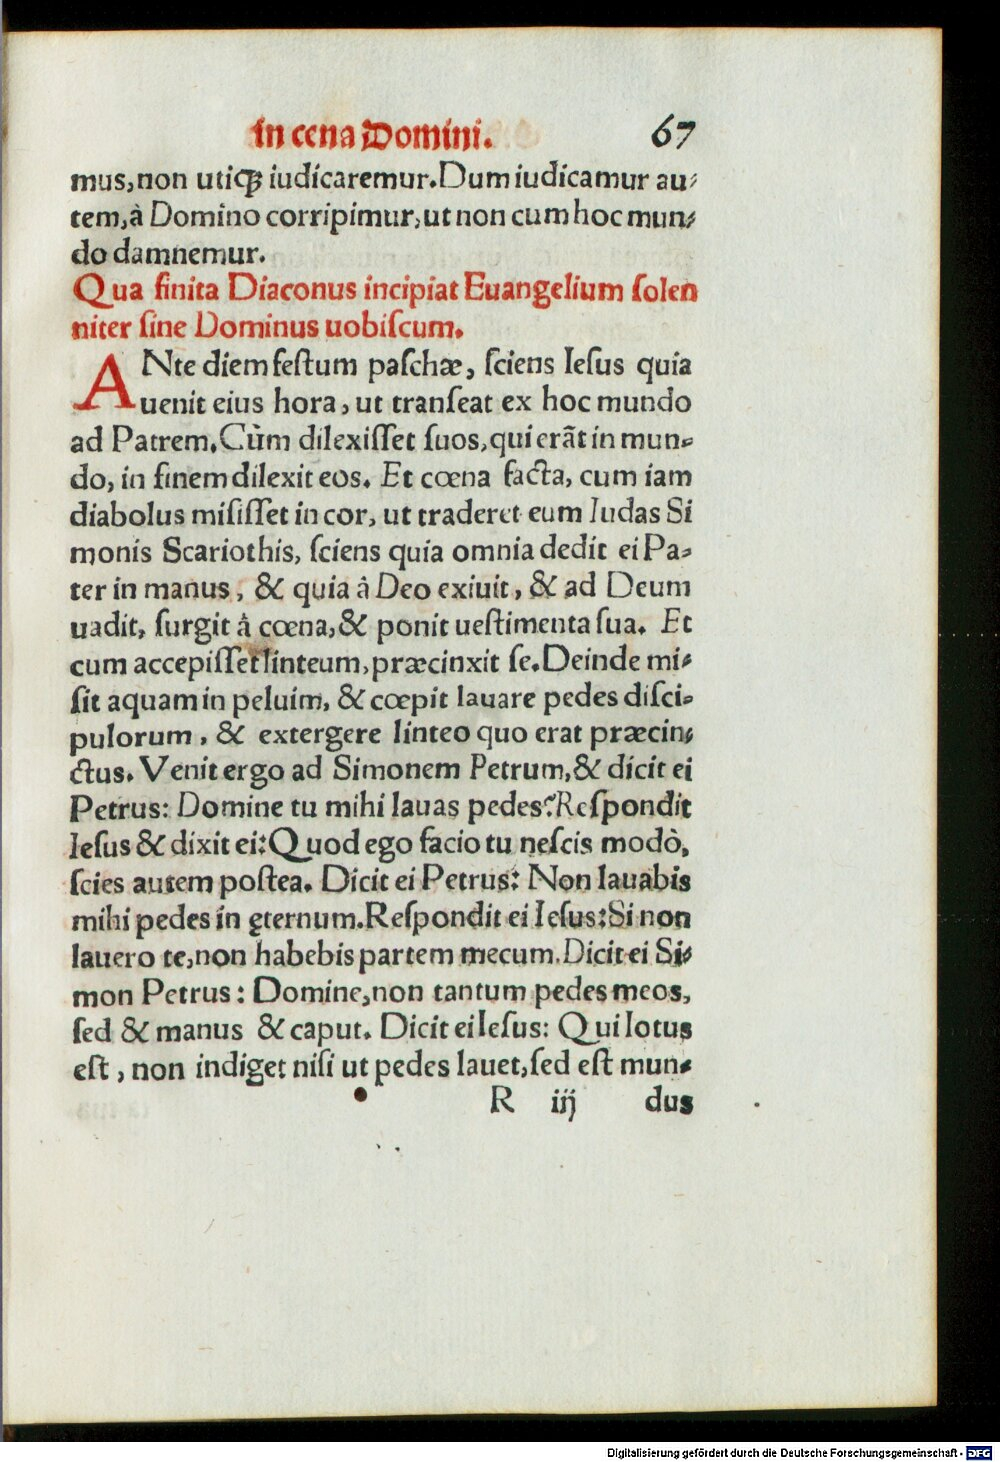 In cena Domini. 67
mus,non utiqꝫ iudicaremur.Dum iudicamur au⸗
tem,à Domino corripimur,ut non cum hoc mun⸗
do damnemur.
Qua finita Diaconus incipiat Euangelium ſolen
niter ſine Dominus uobiſcum.
ANte diem feſtum paſchæ, ſciens Ieſus quia
uenit eius hora, ut tranſeat ex hoc mundo
ad Patrem.Cùm dilexiſſet ſuos,qui erãt in mun⸗
do, in finem dilexit eos. Et cœna facta, cum iam
diabolus miſiſſet in cor, ut traderet eum Iudas Si
monis Scariothis, ſciens quia omnia dedit ei Pa⸗
ter in manus, & quia à Deo exiuit, & ad Deum
uadit, ſurgit à cœna,& ponit ueſtimenta ſua. Et
cum accepiſſet linteum,præcinxit ſe.Deinde mi⸗
ſit aquam in peluim, & cœpit lauare pedes diſci⸗
pulorum, & extergere linteo quo erat præcin⸗
ctus. Venit ergo ad Simonem Petrum,& dicit ei
Petrus: Domine tu mihi lauas pedes?Reſpondit
Ieſus & dixit ei:Quod ego facio tu neſcis modò,
ſcies autem poſtea. Dicit ei Petrus: Non lauabis
mihi pedes in ęternum.Reſpondit ei Ieſus:Si non
lauero te,non habebis partem mecum.Dicit ei Si⸗
mon Petrus: Domine,non tantum pedes meos,
ſed & manus & caput. Dicit ei Ieſus: Qui lotus
eſt, non indiget niſi ut pedes lauet,ſed eſt mun⸗
R iij dus
Digitalisierung gefördert durch die Deutsche Forschungsgemeinschaft - DFG